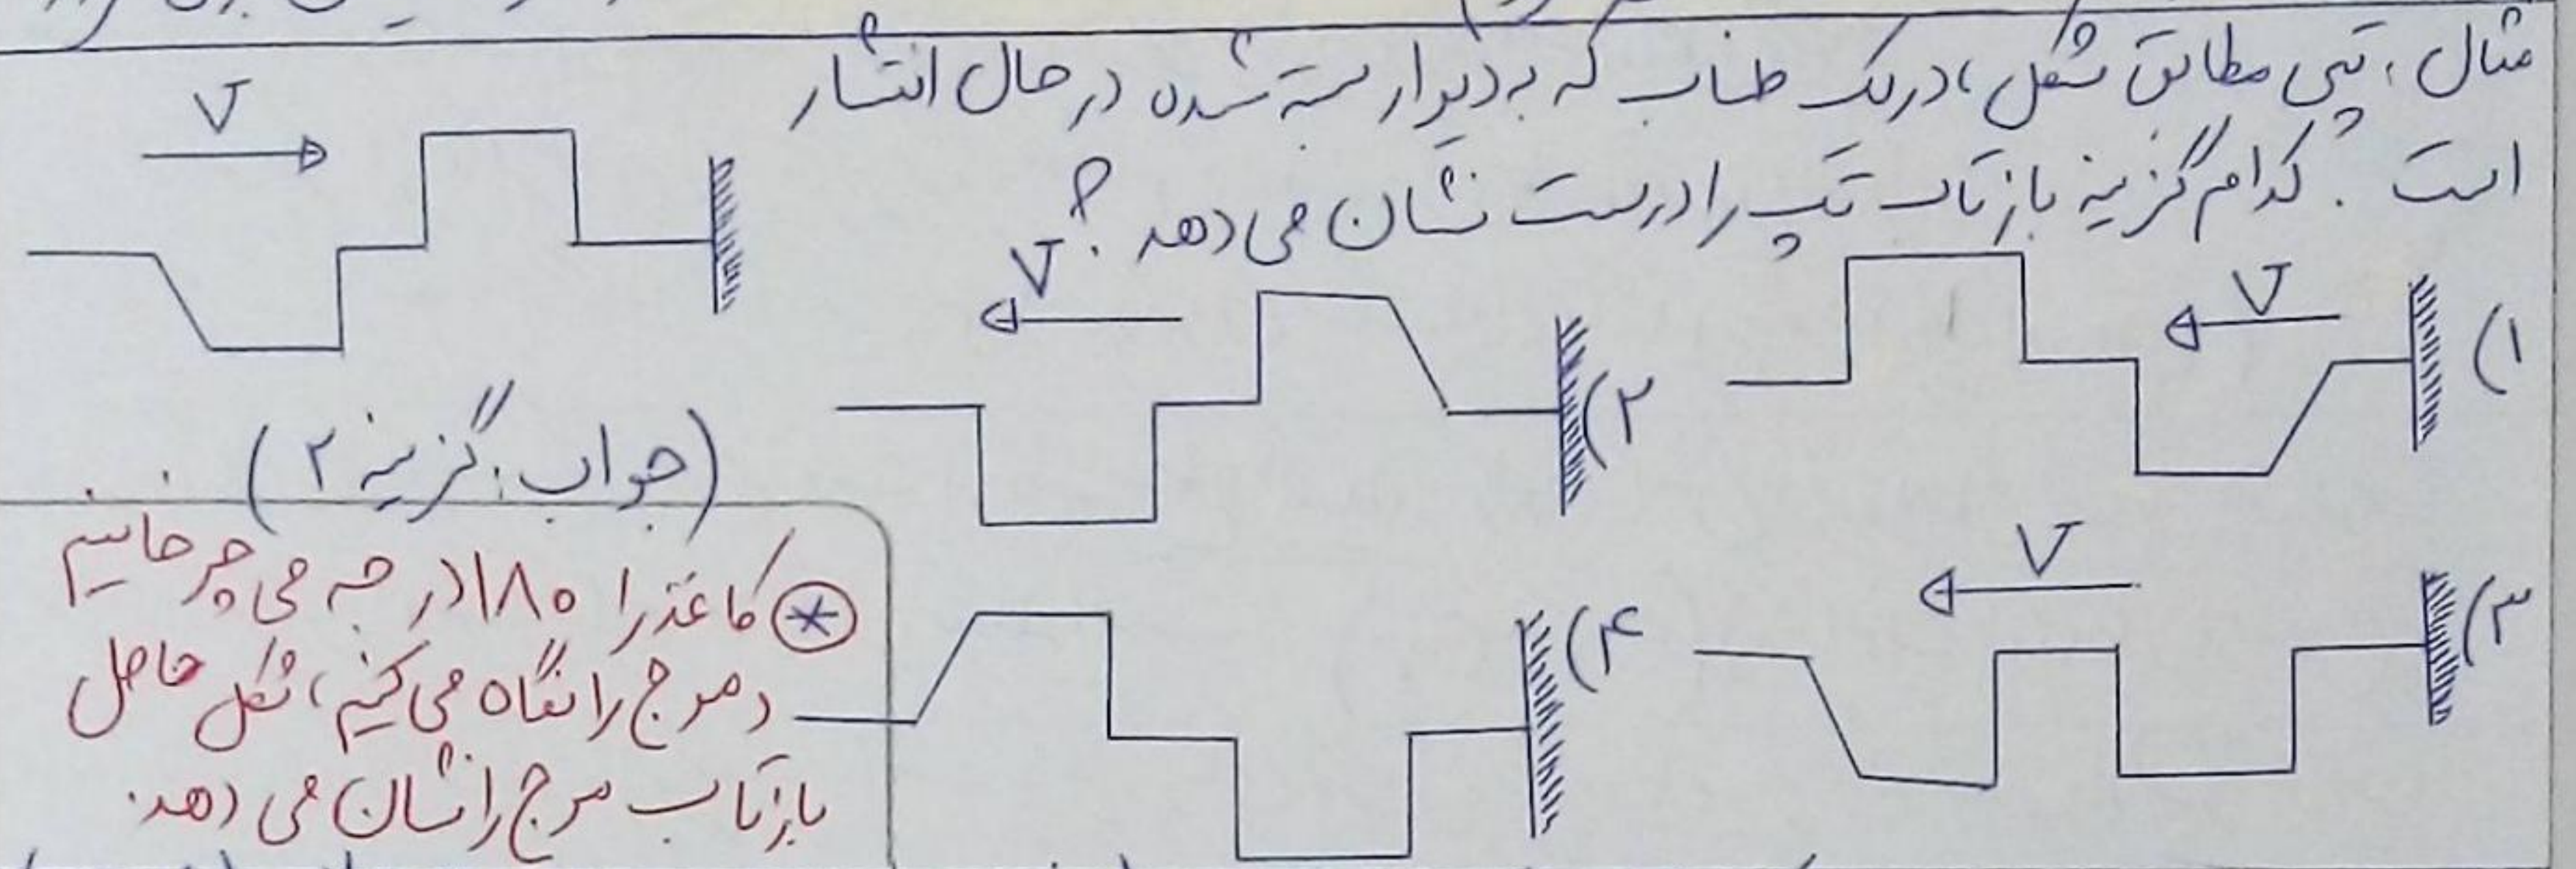 مثال: تپی مطابق شکل، در یک طناب که به دیوار بسته شده در حال انتشار
است. کدام گزینه بازتاب تپ را درست نشان می‌دهد؟
V
V
۱)
V
۲)
V
۳)
۴)
(جواب: گزینه ۲)
* کاغذ را ۱۸۰ درجه می‌چرخانیم
و موج را نگاه می‌کنیم، شکل حاصل
بازتاب موج را نشان می‌دهد.